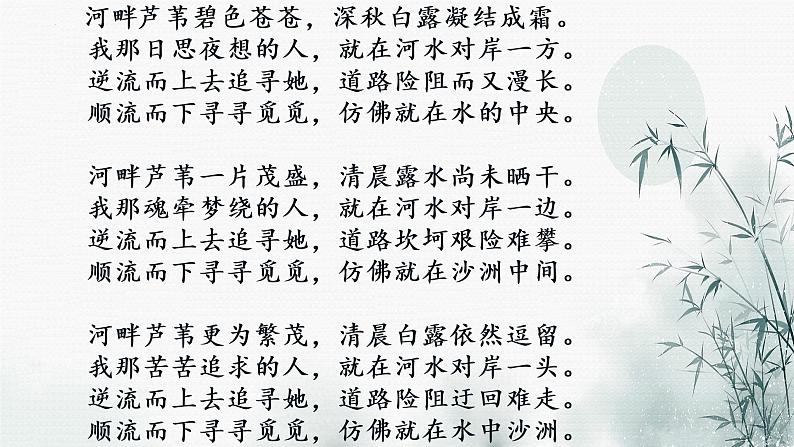 河畔芦苇碧色苍苍，深秋白露凝结成霜。
我那日思夜想的人，就在河水对岸一方。
逆流而上去追寻她，道路险阻而又漫长。
顺流而下寻寻觅觅，仿佛就在水的中央。
河畔芦苇一片茂盛，清晨露水尚未晒干。
我那魂牵梦绕的人，就在河水对岸一边。
逆流而上去追寻她，道路坎坷艰险难攀。
顺流而下寻寻觅觅，仿佛就在沙洲中间。
河畔芦苇更为繁茂，清晨白露依然逗留。
我那苦苦追求的人，就在河水对岸一头。
逆流而上去追寻她，道路险阻迂回难走。
顺流而下寻寻觅觅，仿佛就在水中沙洲。